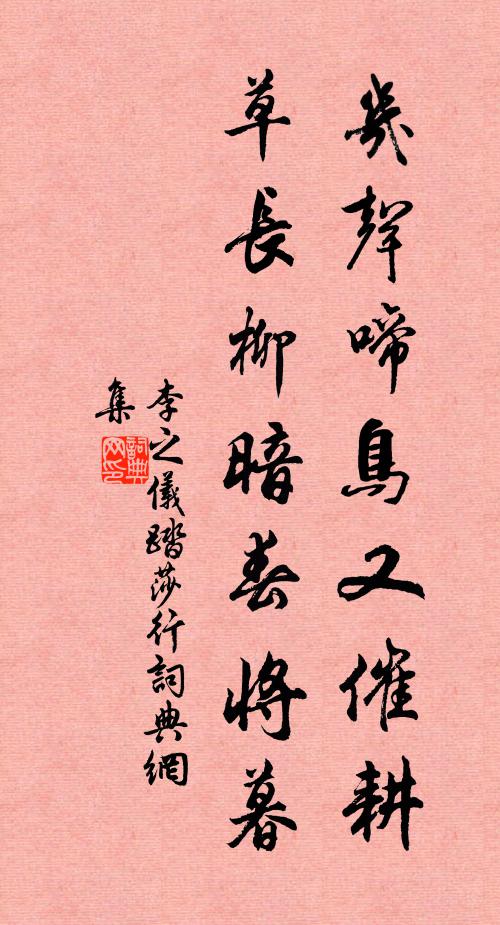 幾聲啼鳥又催耕
草長柳暗春將暮
李之儀踏莎行詞典網
集
詞典網印